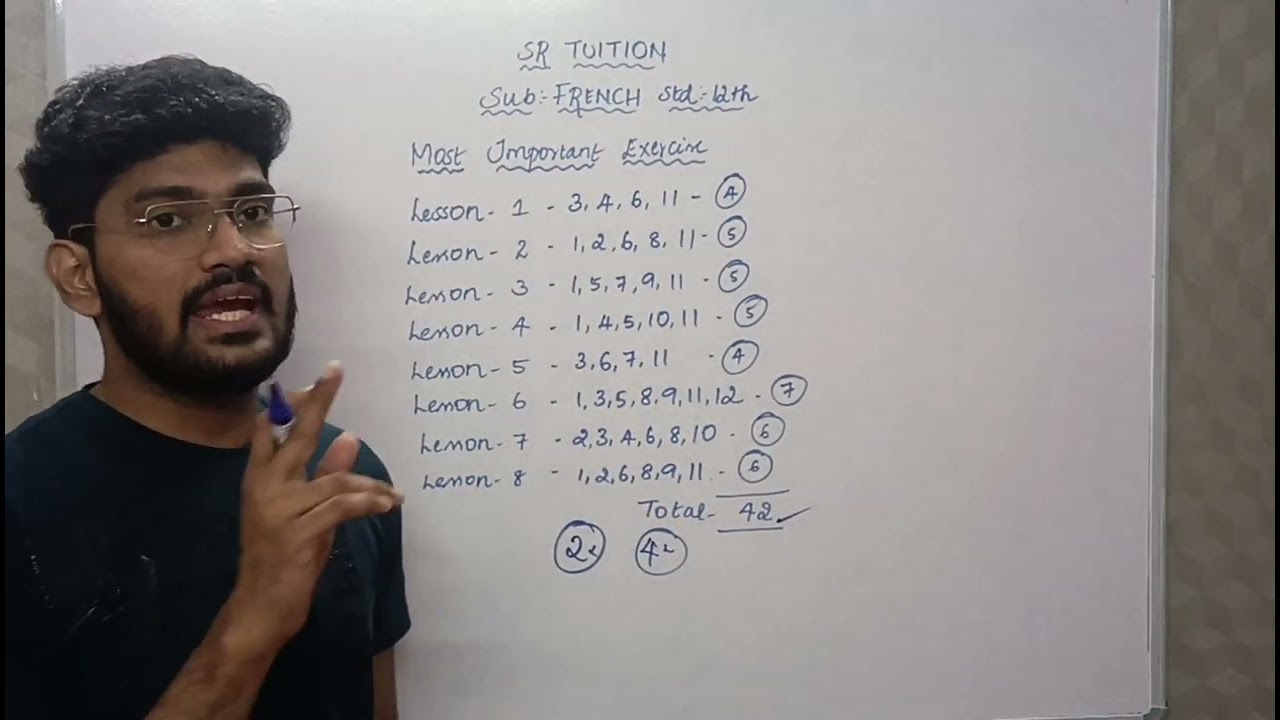 SR TUITION
Sub:- FRENCH Std:- 12th
Most Important Exercise
Lesson - 1 - 3, 4, 6, 11 - 4
Lesson - 2 - 1, 2, 6, 8, 11 - 5
Lesson - 3 - 1, 5, 7, 9, 11 - 5
Lesson - 4 - 1, 4, 5, 10, 11 - 5
Lesson - 5 - 3, 6, 7, 11 - 4
Lesson - 6 - 1, 3, 5, 8, 9, 11, 12 - 7
Lesson - 7 - 2, 3, 4, 6, 8, 10 - 6
Lesson - 8 - 1, 2, 6, 8, 9, 11 - 6
Total - 42
2 4